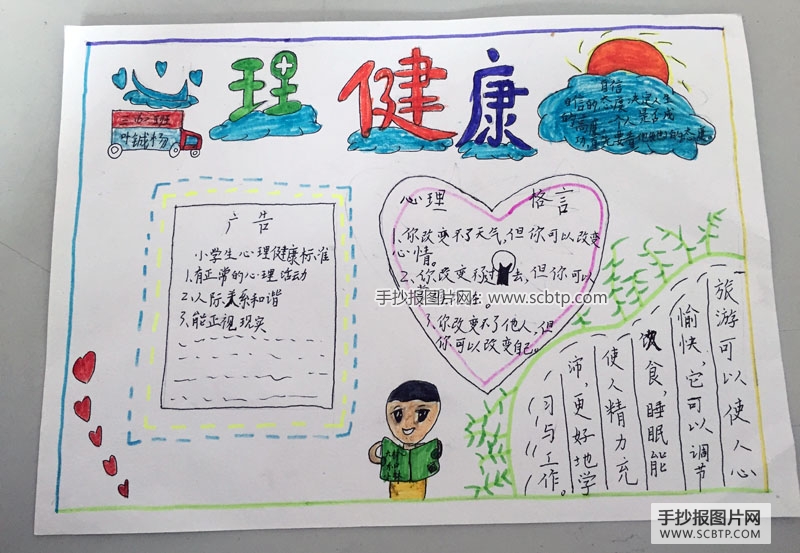 心理健康
叶铖杨
自信
的态度决定人生
的高度
广告
小学生心理健康标准
1.有正常的心理活动
2.人际关系和谐
3.能正视现实
心理 格言
1.你改变不了天气,但你可以改变
心情。
2.你改变不过去,但你可以
3.你改变不了他人,但
你可以改变自己。
手抄报图片网:www.scbtp.com
旅游可以使人心
愉快,它可以调节
饮食,睡眠能
使人精力充
沛,更好地学
习与工作。
手抄报图片网
WWW.SCBTP.COM